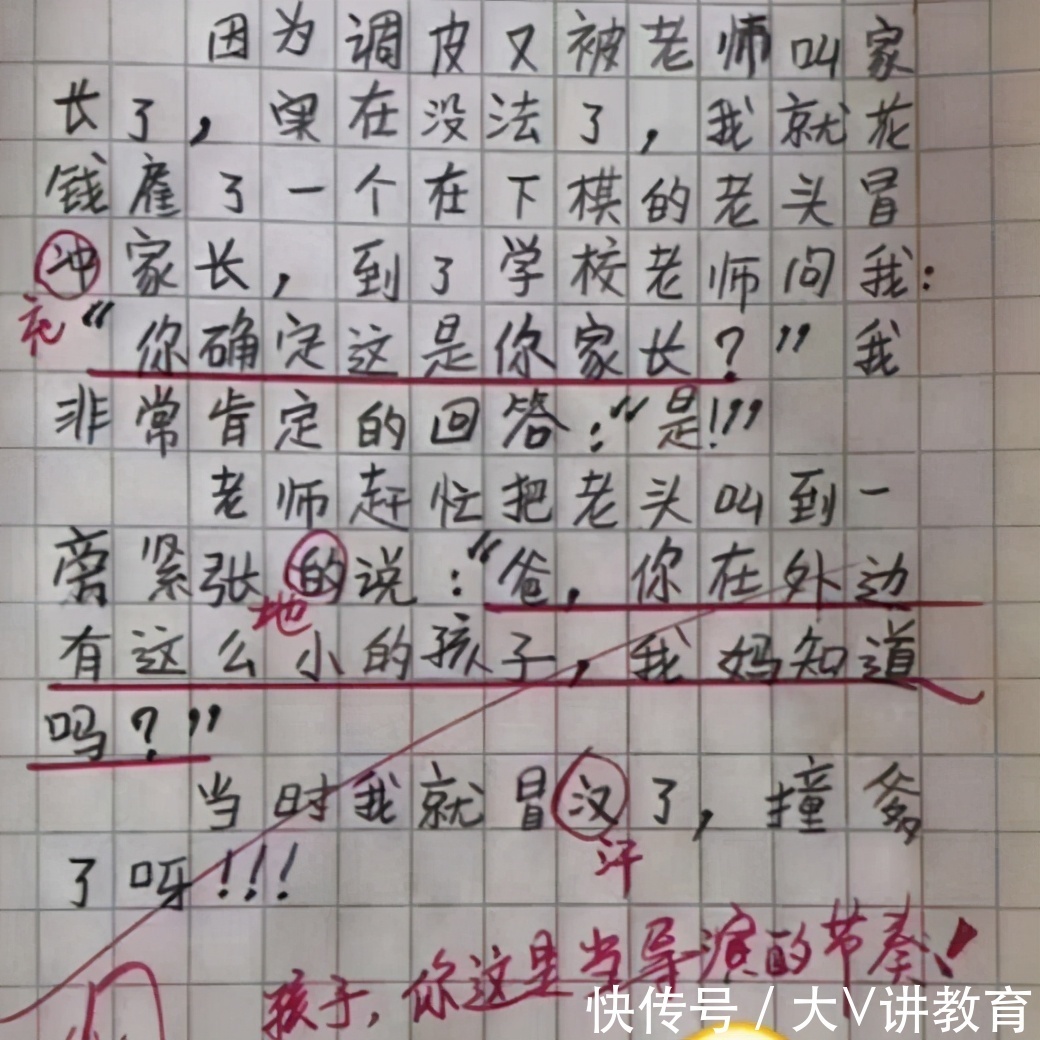 因为调皮又被老师叫家
长了，实在没法了，我就花
钱雇了一个在下棋的老头冒
冲家长，到了学校老师问我：
充
“你确定这是你家长？”我
非常肯定的回答：“是!”
老师赶忙把老头叫到一
旁紧张的说：“爸，你在外边
地
有这么小的孩子，我妈知道
吗？”
当时我就冒汉了，撞爹
汗
了呀!!!
孩子，你这是当导演的节奏!
快传号 / 大V讲教育